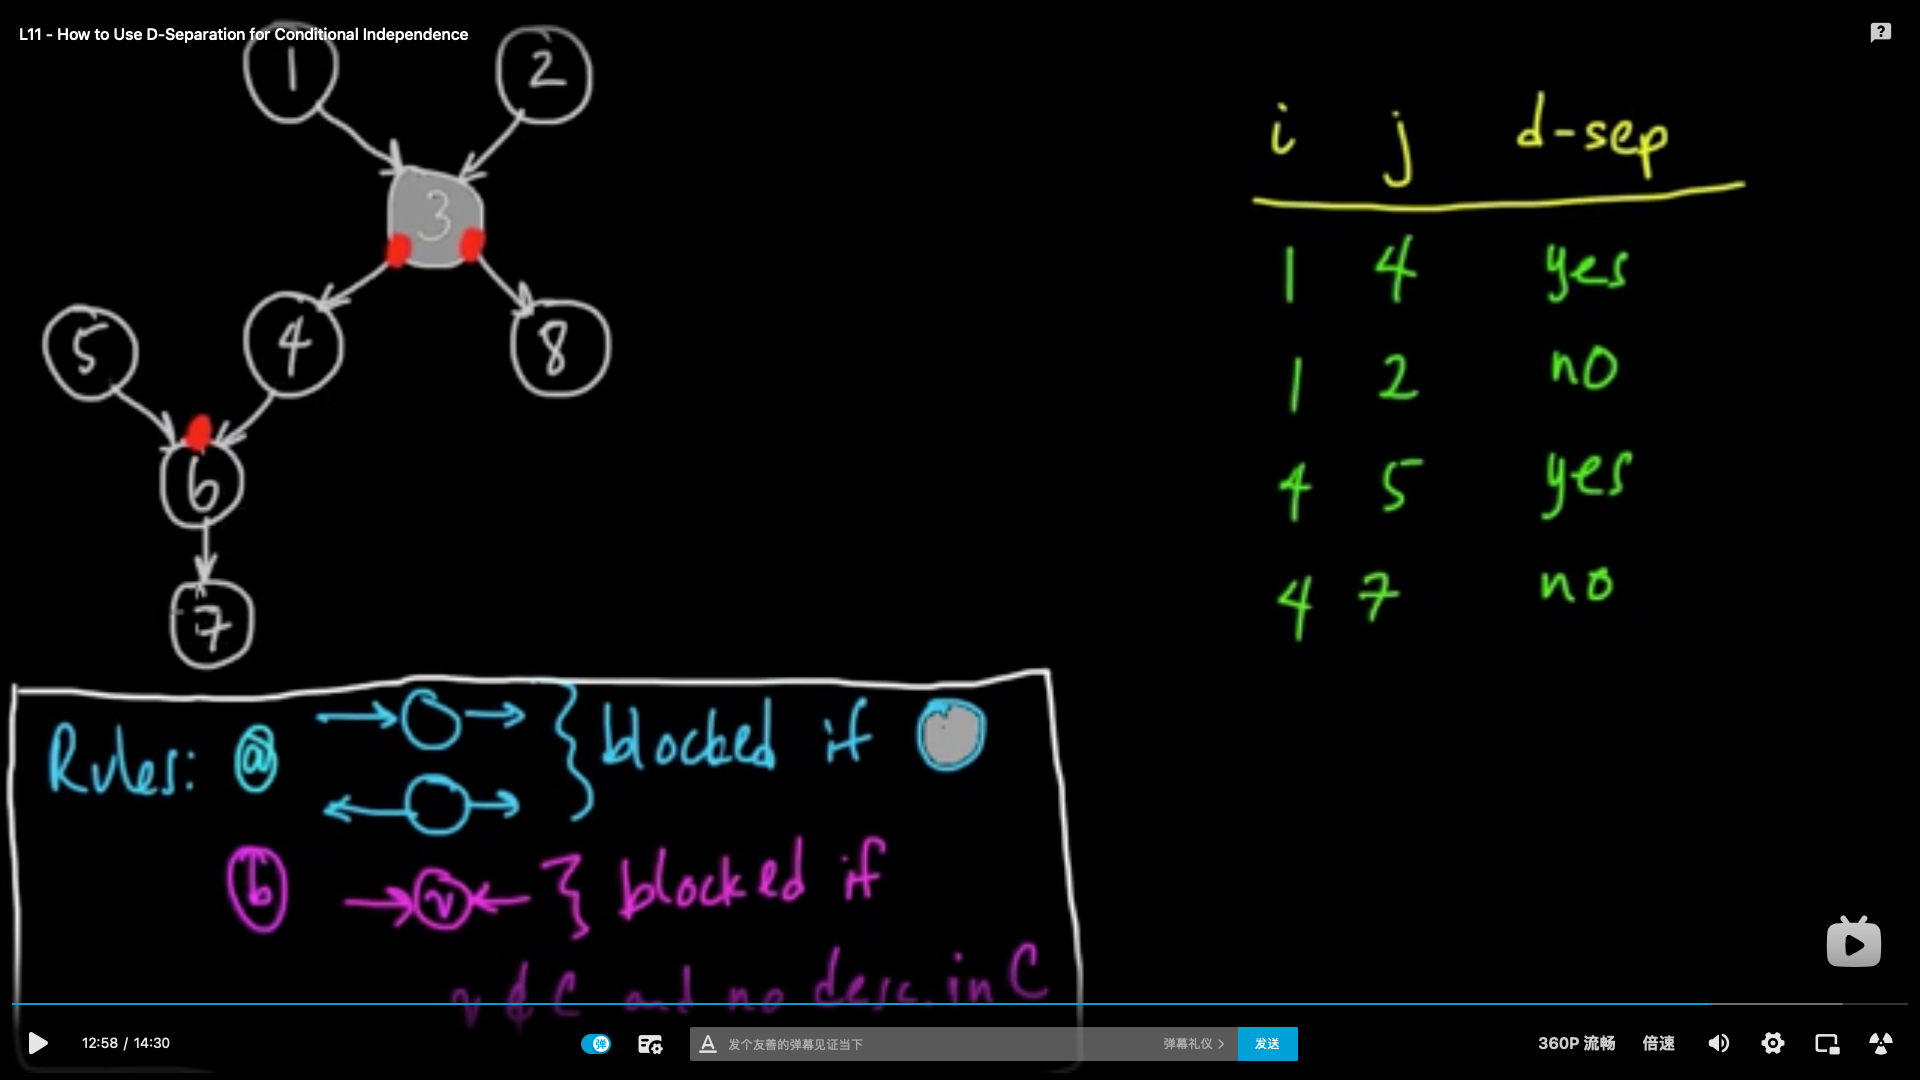 L11 - How to Use D-Separation for Conditional Independence
1 2
3
5 4 8
6
7
i j d-sep
1 4 yes
1 2 no
4 5 yes
4 7 no
Rules: a } blocked if
b v } blocked if
v ∉ C and no desc. in C
12:58 / 14:30
弹
发个友善的弹幕见证当下
弹幕礼仪 >
发送
360P 流畅
倍速